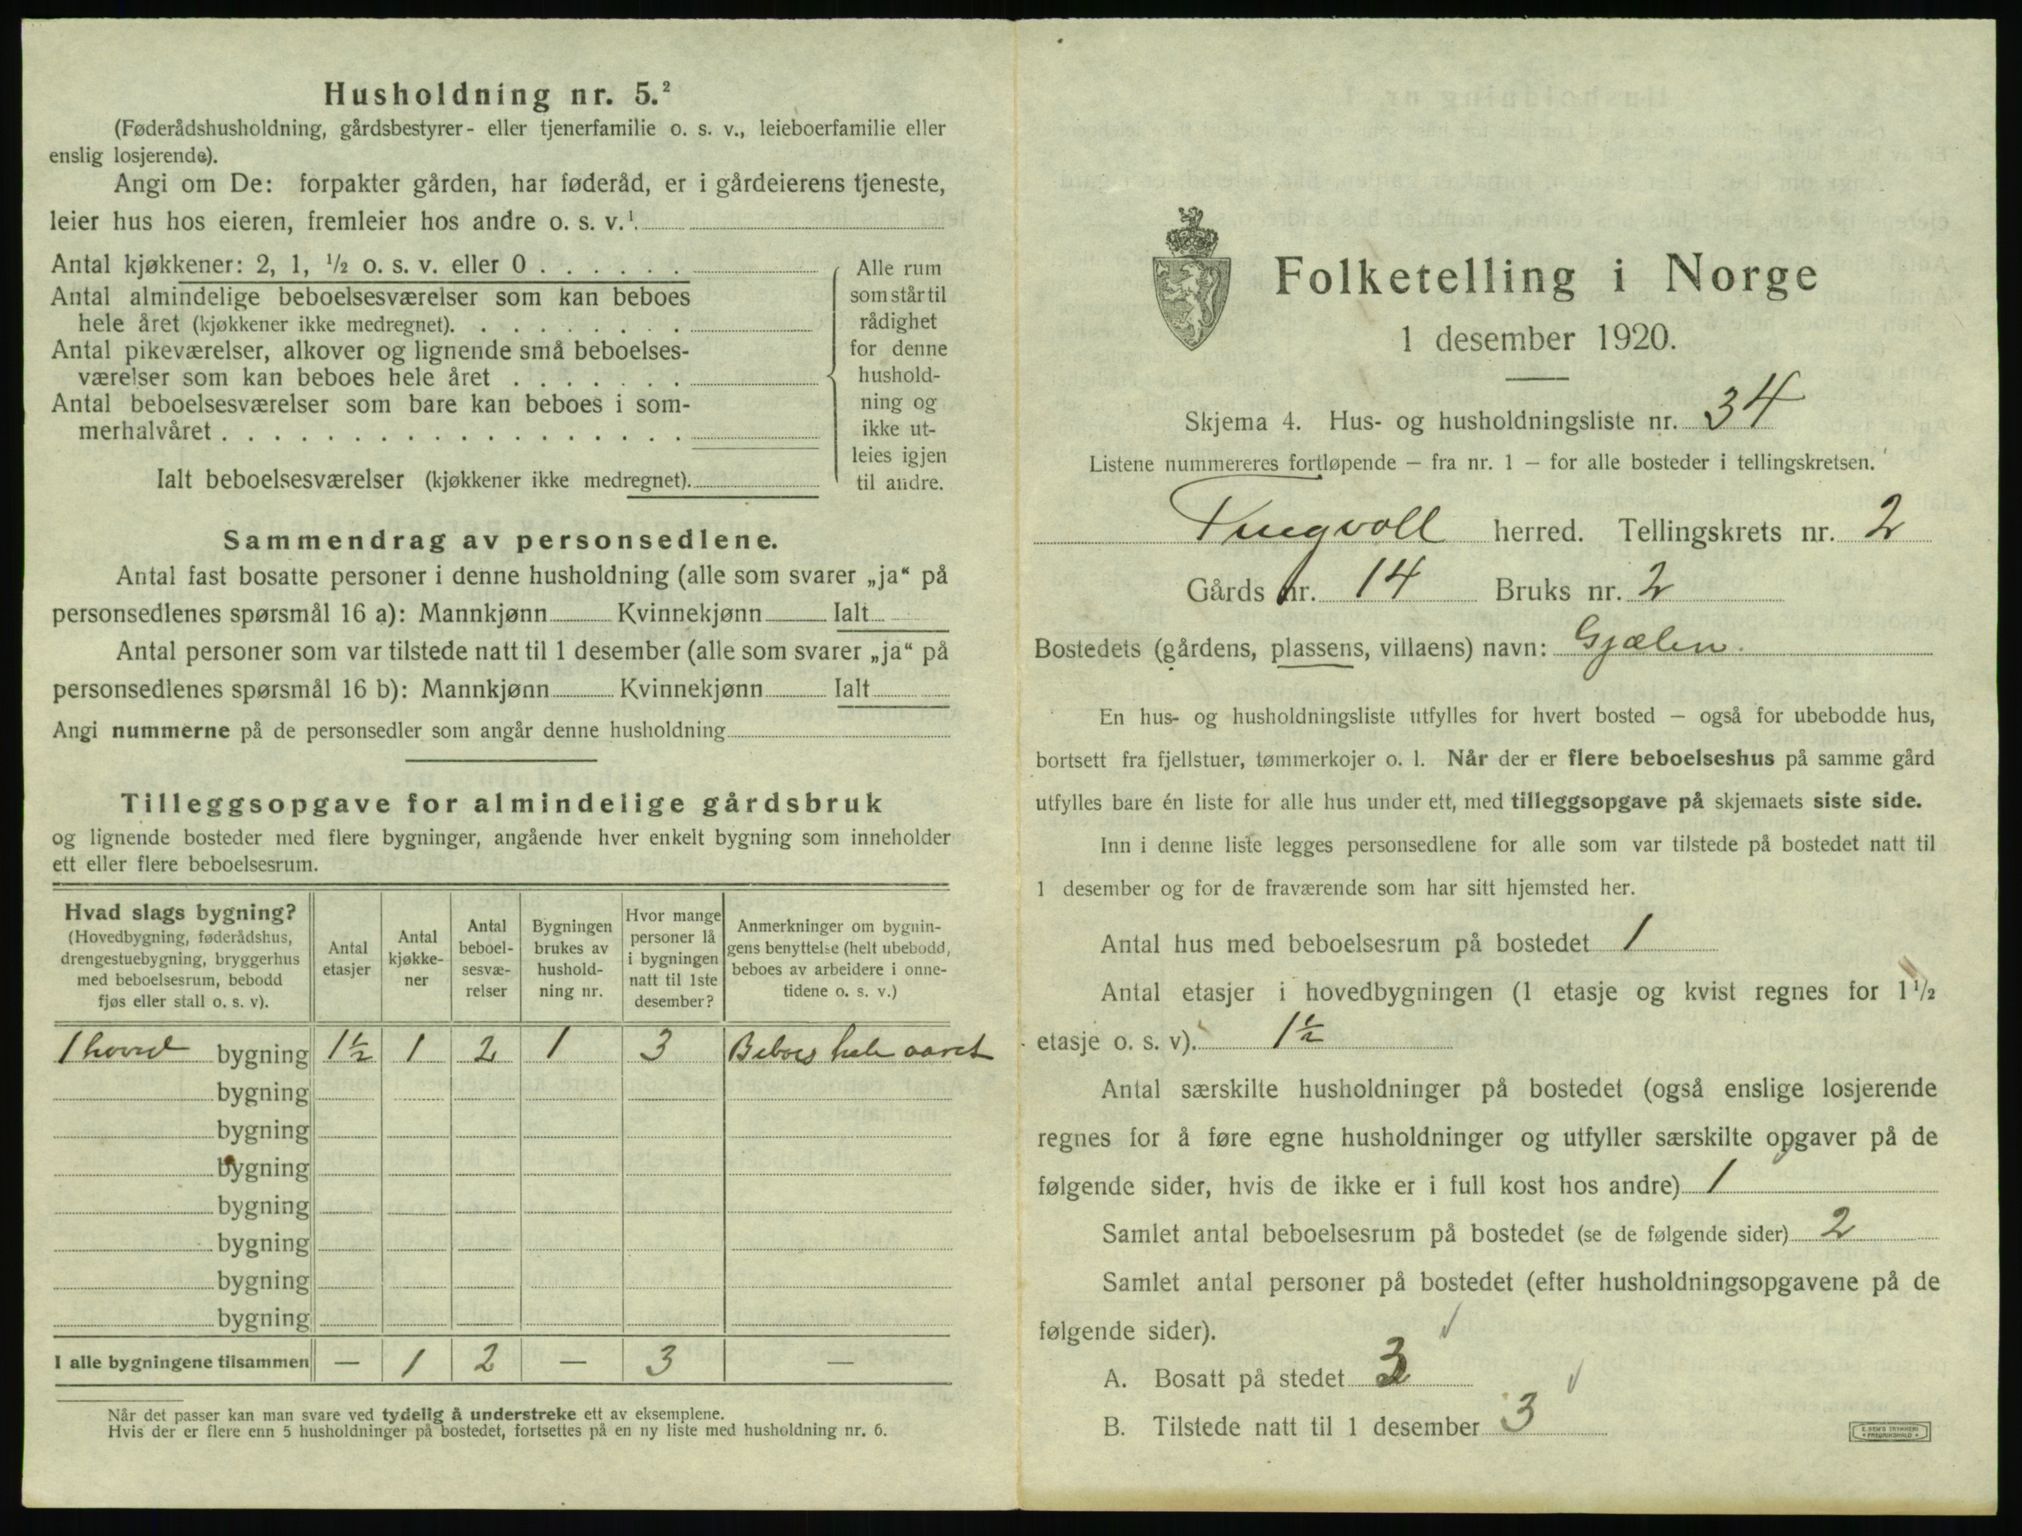 Husholdning nr. 5.²
(Føderådshusholdning, gårdsbestyrer- eller tjenerfamilie o. s. v., leieboerfamilie eller
enslig losjerende).
Angi om De: forpakter gården, har føderåd, er i gårdeierens tjeneste,
leier hus hos eieren, fremleier hos andre o. s. v.¹
Antal kjøkkener: 2, 1, ½ o. s. v. eller 0 . . . . . .
Antal almindelige beboelsesværelser som kan beboes
hele året (kjøkkener ikke medregnet). . . . . . . . .
Antal pikeværelser, alkover og lignende små beboelses-
værelser som kan beboes hele året . . . . . . .
Antal beboelsesværelser som bare kan beboes i som-
merhalvåret . . . . . . . . . . . . . . . . . .
Ialt beboelsesværelser (kjøkkener ikke medregnet).
Alle rum
som står til
rådighet
for denne
hushold-
ning og
ikke ut-
leies igjen
til andre.
Sammendrag av personsedlene.
Antal fast bosatte personer i denne husholdning (alle som svarer „ja“ på
personsedlenes spørsmål 16 a): Mannkjønn Kvinnekjønn Ialt
Antal personer som var tilstede natt til 1 desember (alle som svarer „ja“ på
personsedlenes spørsmål 16 b): Mannkjønn Kvinnekjønn Ialt
Angi nummerne på de personsedler som angår denne husholdning
Tilleggsopgave for almindelige gårdsbruk
og lignende bosteder med flere bygninger, angående hver enkelt bygning som inneholder
ett eller flere beboelsesrum.
Hvad slags bygning?
(Hovedbygning, føderådshus,
drengestuebygning, bryggerhus
med beboelsesrum, bebodd
fjøs eller stall o. s. v).
Antal
etasjer
Antal
kjøkke-
ner
Antal
beboel-
sesvæ-
relser
Bygningen
brukes av
hushold-
ning nr.
Hvor mange
personer lå
i bygningen
natt til 1ste
desember?
Anmerkninger om bygnin-
gens benyttelse (helt ubebodd,
beboes av arbeidere i onne-
tidene o. s. v.)
1 hoved bygning 1½ 1 2 1 3 Beboes hele aaret
bygning
bygning
bygning
bygning
bygning
bygning
bygning
I alle bygningene tilsammen — 1 2 — 3 —
Når det passer kan man svare ved tydelig å understreke ett av eksemplene.
Hvis der er flere enn 5 husholdninger på bostedet, fortsettes på en ny liste med husholdning nr. 6.
Folketelling i Norge
1 desember 1920.
Skjema 4. Hus- og husholdningsliste nr. 34
Listene nummereres fortløpende — fra nr. 1 — for alle bosteder i tellingskretsen.
Tingvoll herred. Tellingskrets nr. 2
Gårds nr. 14 Bruks nr. 2
Bostedets (gårdens, plassens, villaens) navn: Gjælen.
En hus- og husholdningsliste utfylles for hvert bosted — også for ubebodde hus,
bortsett fra fjellstuer, tømmerkojer o. l. Når der er flere beboelseshus på samme gård
utfylles bare én liste for alle hus under ett, med tilleggsopgave på skjemaets siste side.
Inn i denne liste legges personsedlene for alle som var tilstede på bostedet natt til
1 desember og for de fraværende som har sitt hjemsted her.
Antal hus med beboelsesrum på bostedet 1
Antal etasjer i hovedbygningen (1 etasje og kvist regnes for 1½
etasje o. s. v). 1½
Antal særskilte husholdninger på bostedet (også enslige losjerende
regnes for å føre egne husholdninger og utfyller særskilte opgaver på de
følgende sider, hvis de ikke er i full kost hos andre) 1
Samlet antal beboelsesrum på bostedet (se de følgende sider) 2
Samlet antal personer på bostedet (efter husholdningsopgavene på de
følgende sider).
A. Bosatt på stedet 3
B. Tilstede natt til 1 desember 3